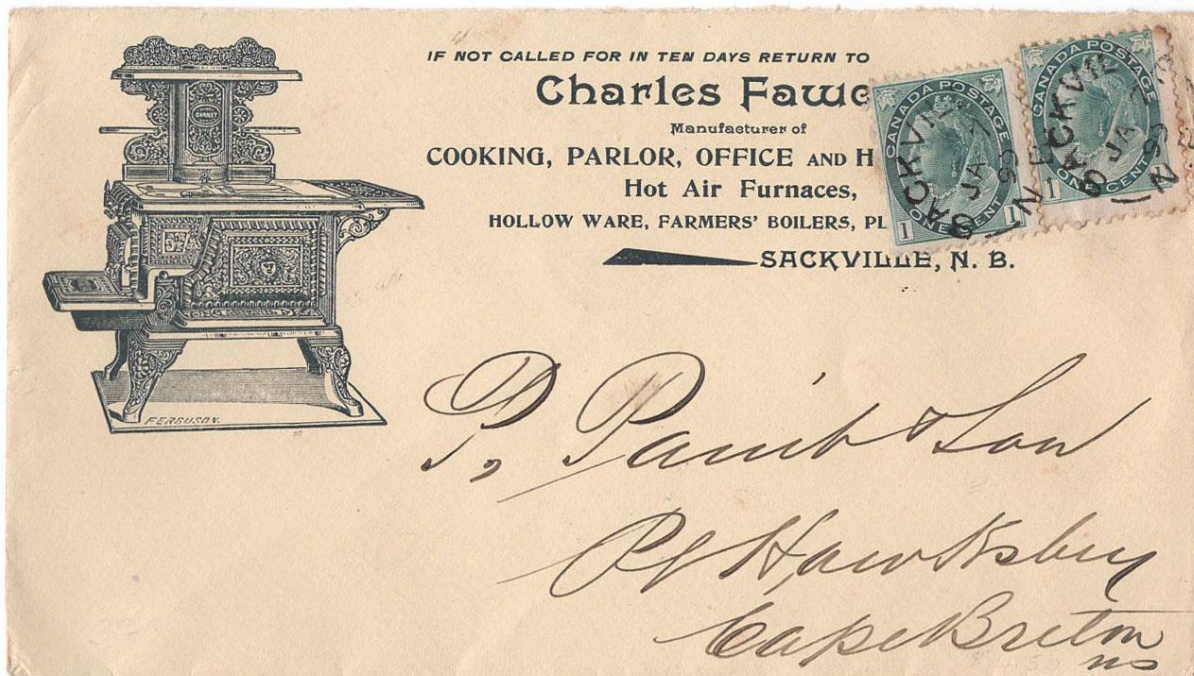 IF NOT CALLED FOR IN TEN DAYS RETURN TO
Charles Fawc
Manufacturer of
COOKING, PARLOR, OFFICE AND H
Hot Air Furnaces,
HOLLOW WARE, FARMERS' BOILERS, PL
SACKVILLE, N. B.
GARNET
FERGUSON.
CANADA POSTAGE
1 ONE CENT 1
SACKVIL
JA 7
99
N.B.
CANADA POSTAGE
1 ONE CENT
SACKVIL
JA 7
99
N.B.
P. Paint & Son
Pt Hawksbury
Cape Breton
NS